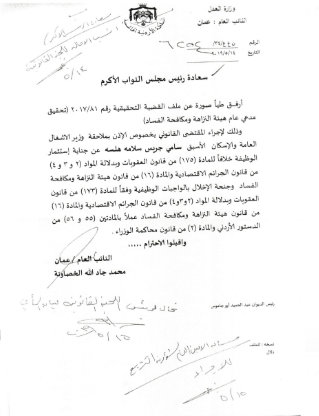 وزارة العدل
النائب العام : عمان
الرقم
التاريخ
سعادة رئيس مجلس النواب الأكرم
أرفق طياً صورة عن ملف القضية التحقيقية رقم ٢٠١٧/٨١ (تحقيق
مدعي عام هيئة النزاهة ومكافحة الفساد)
وذلك لإجراء المقتضى القانوني بخصوص الإذن بملاحقة وزير الاشغال
العامة والإسكان الأسبق سامي جريس سلامه هلسه عن جناية إستثمار
الوظيفة خلافاً للمادة (١٧٥) من قانون العقوبات وبدلالة المواد (٢ و ٣ و ٤)
من قانون الجرائم الاقتصادية والمادة (١٦) من قانون هيئة النزاهة ومكافحة
الفساد وجنحة الإخلال بالواجبات الوظيفية وفقاً للمادة (١٧٣) من قانون
العقوبات وبدلالة المواد (٢و٣و٤) من قانون الجرائم الاقتصادية والمادة (١٦)
من قانون هيئة النزاهة ومكافحة الفساد عملاً بالمادتين (٥٥ و ٥٦) من
الدستور الأردني والمادة (٢) من قانون محاكمة الوزراء .
واقبلوا الاحترام .....
النائب العام / عمان
محمد جاد الله الخصاونة
رئيس الديوان عبد الحميد أبو جاموس
نسخة : الملف
٥/١٥